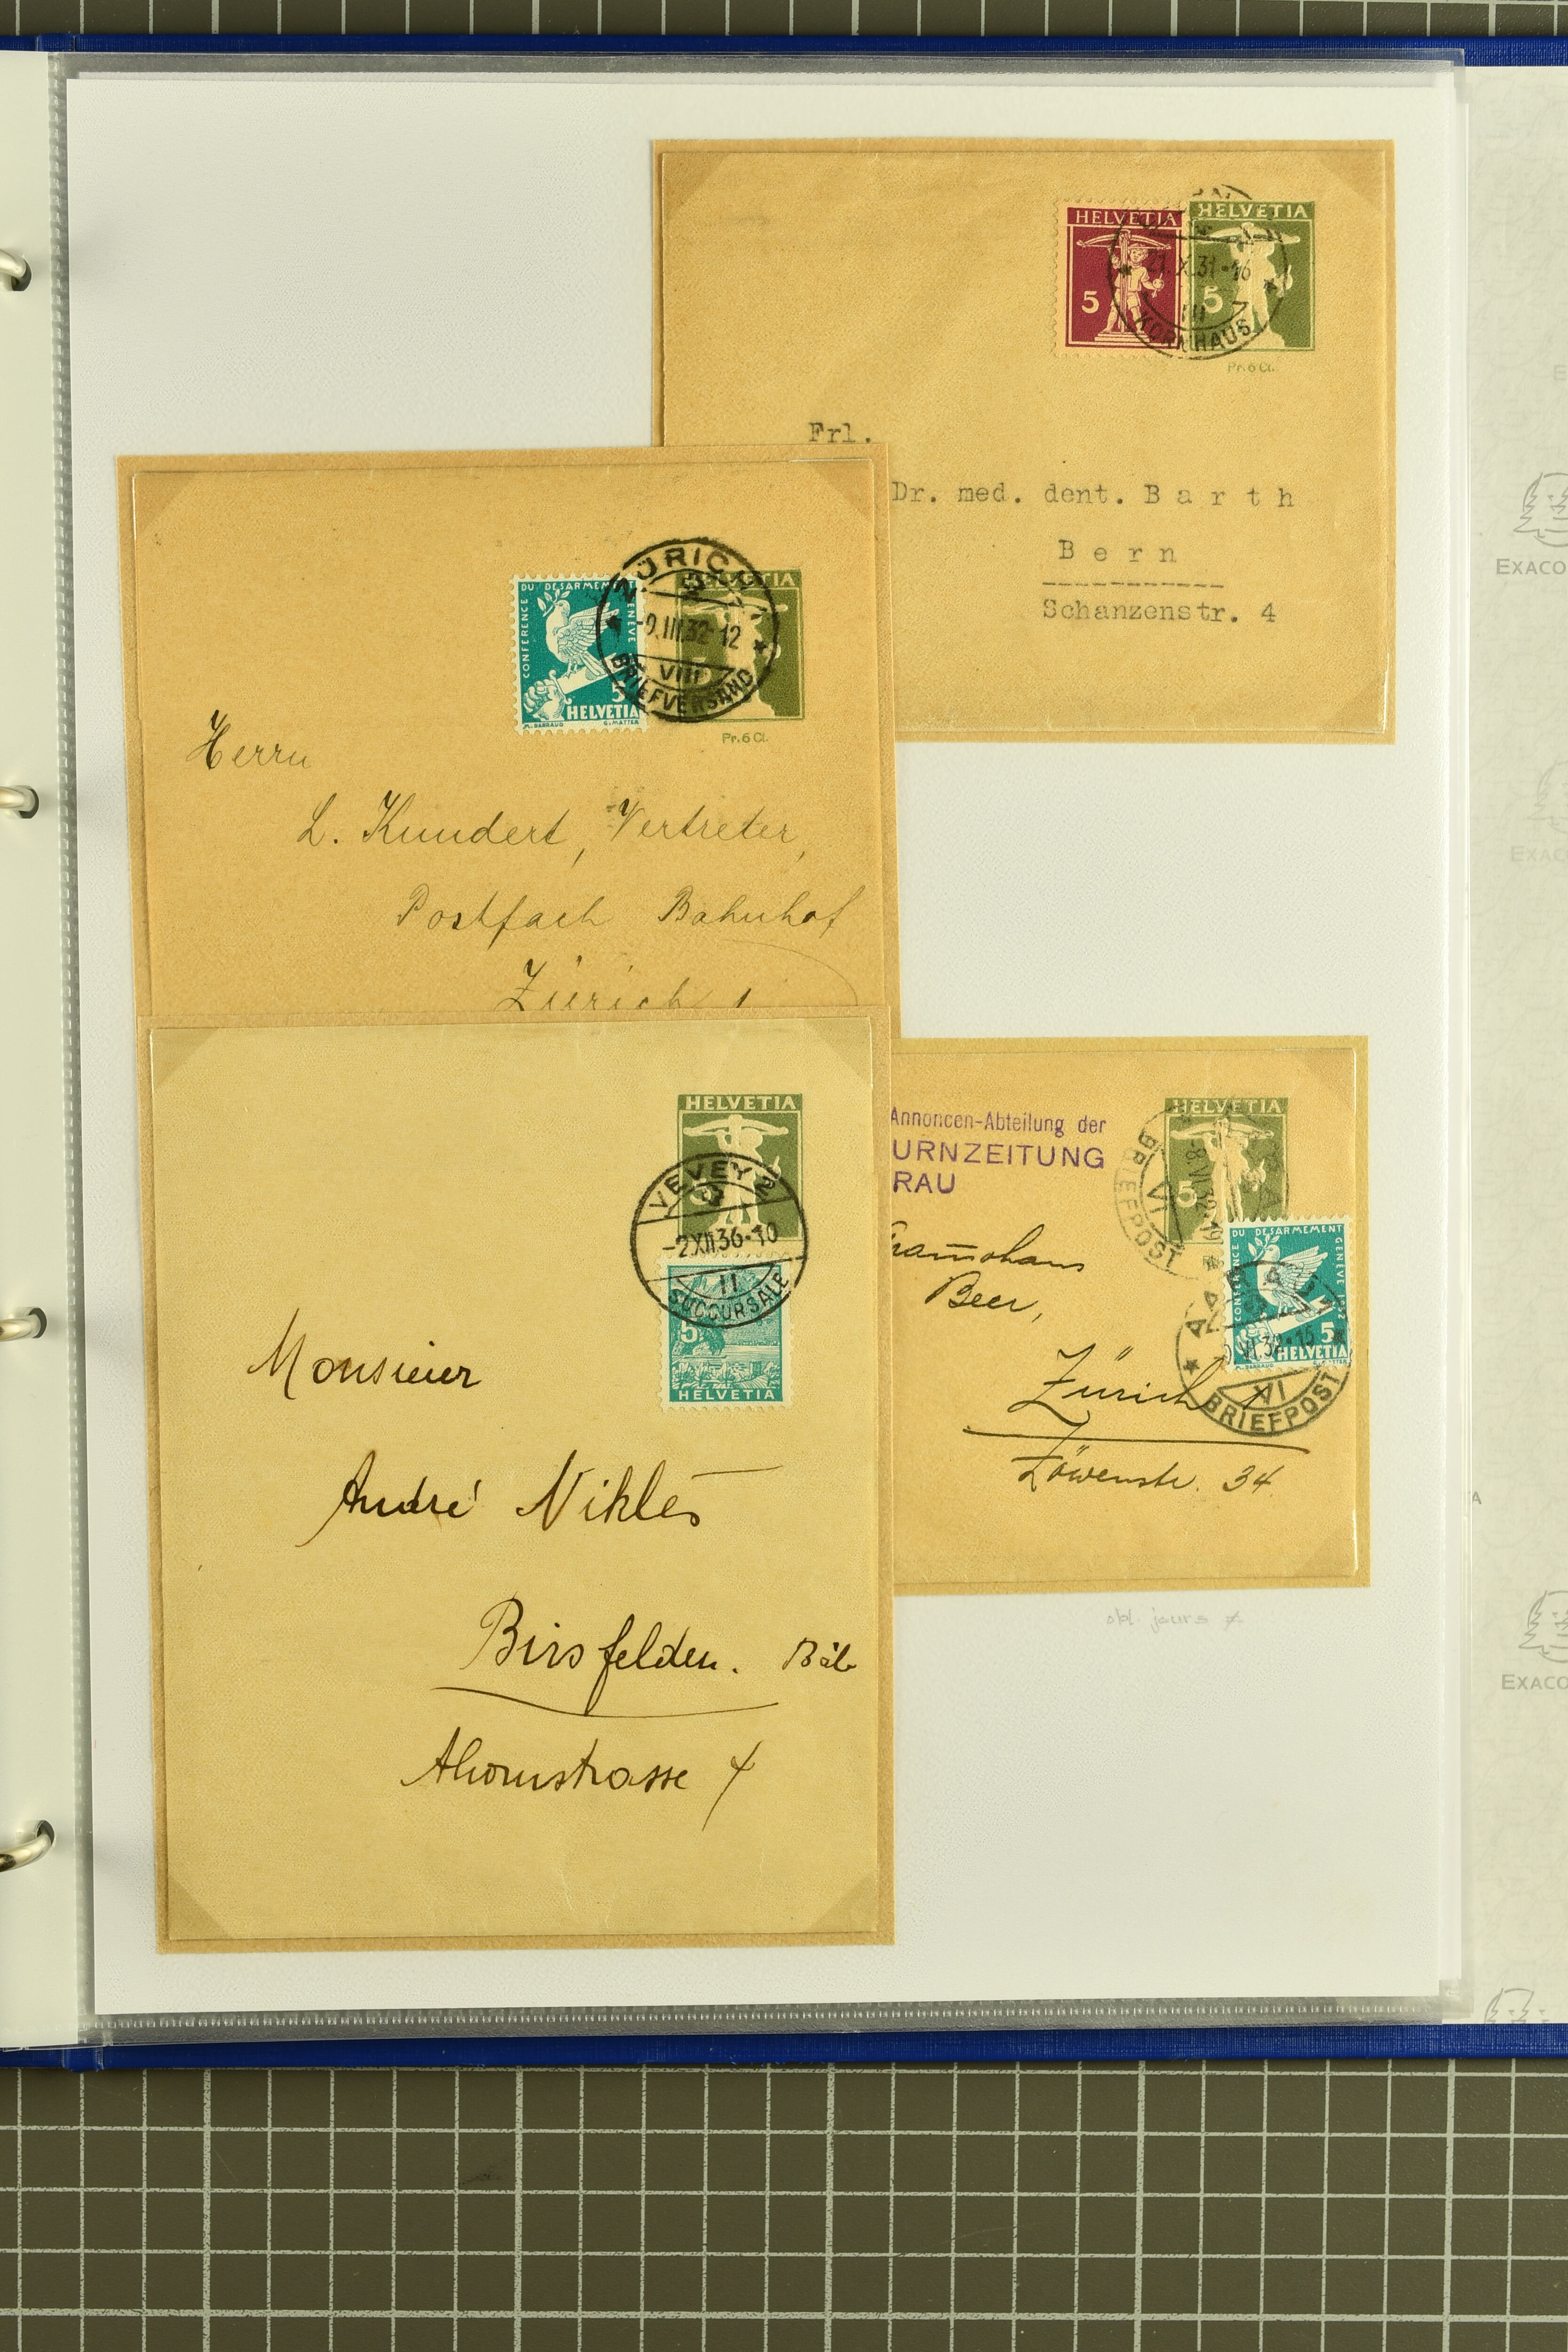 HELVETIA
5
HELVETIA
5
21.X.31-16
III
KORNHAUS
Pr. 6 Ct.
Frl.
Dr. med. dent. Barth
Bern
Schanzenstr. 4
CONFERENCE DU DESARMEMENT GENEVE
5
HELVETIA
M. BARRAUD G. MATTER
HELVETIA
5
ZÜRICH 1
-9.III.32-12
VIII
BRIEFVERSAND
Pr. 6 Ct.
Herrn
L. Kundert, Vertreter,
Postfach Bahnhof
Zürich 1
HELVETIA
VEVEY
-2.XII.36-10
II
SUCCURSALE
5
HELVETIA
Monsieur
André Niklès
Birsfelden. Bâle
Ahornstrasse 4
Annoncen-Abteilung der
URNZEITUNG
RAU
HELVETIA
5
-8.VI.32-19
VI
BRIEFPOST
CONFERENCE DU DESARMEMENT GENEVE 1932
5
HELVETIA
AARAU 1
VI.32-15
VI
BRIEFPOST
Beer,
Zürich 1
Löwenstr. 34
obl. jours ≠
EXACO
EXACO